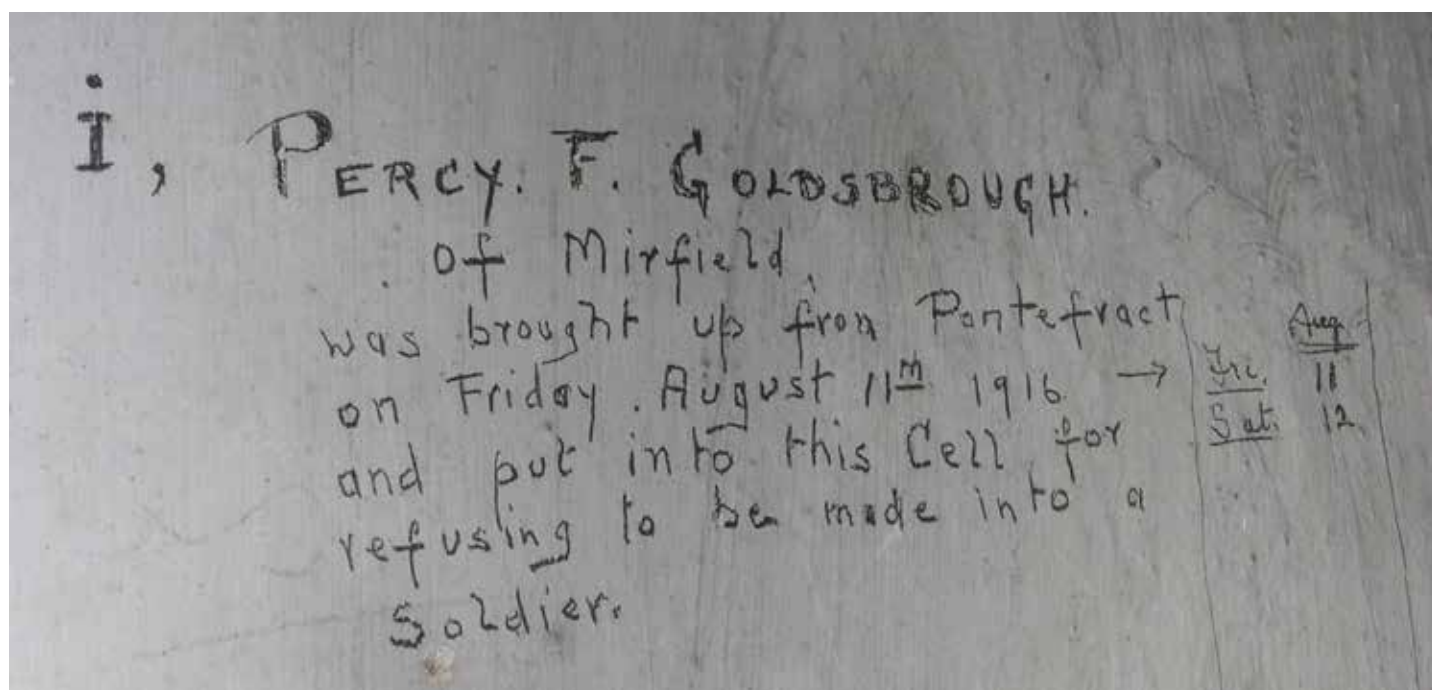 i, PERCY. F. GOLDSBROUGH.
of Mirfield.
was brought up from Pontefract
on Friday. August 11th 1916 →
and put into this Cell for
refusing to be made into a
Soldier.
Aug.
Fri. 11
Sat. 12